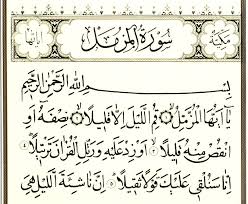 سُورَةُ الْمُزَّمِّلِ
مَكِّيَّة
بِسْمِ اللَّهِ الرَّحْمَٰنِ الرَّحِيمِ
يَا أَيُّهَا الْمُزَّمِّلُ ۝ قُمِ اللَّيْلَ إِلَّا قَلِيلًا ۝ نِصْفَهُ أَوِ
انْقُصْ مِنْهُ قَلِيلًا ۝ أَوْ زِدْ عَلَيْهِ وَرَتِّلِ الْقُرْآنَ تَرْتِيلًا ۝
إِنَّا سَنُلْقِي عَلَيْكَ قَوْلًا ثَقِيلًا ۝ إِنَّ نَاشِئَةَ اللَّيْلِ هِيَ